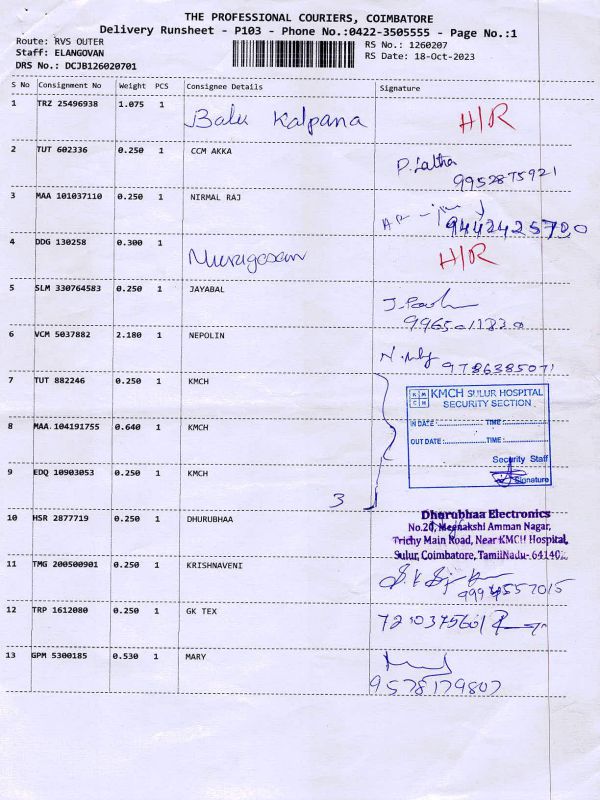 THE PROFESSIONAL COURIERS, COIMBATORE
Delivery Runsheet - P103 - Phone No.:0422-3505555 - Page No.:1
Route: RVS OUTER
Staff: ELANGOVAN
DRS No.: DCJB126020701
RS No.: 1260207
RS Date: 18-Oct-2023
S No Consignment No Weight PCS Consignee Details Signature
1 TRZ 25496938 1.075 1 Balu Kalpana H/R
2 TUT 602336 0.250 1 CCM AKKA P. Laltha
9952875921
3 MAA 101037110 0.250 1 NIRMAL RAJ
9442425720
4 DDG 130258 0.300 1 Murugesan H/R
5 SLM 330764583 0.250 1 JAYABAL
6 VCM 5037882 2.180 1 NEPOLIN
9786385071
7 TUT 882246 0.250 1 KMCH
8 MAA 104191755 0.640 1 KMCH
9 EDQ 10903053 0.250 1 KMCH
3
KMCH SULUR HOSPITAL
SECURITY SECTION
IN DATE : TIME :
OUT DATE : TIME :
Security Staff
Signature
10 HSR 2877719 0.250 1 DHURUBHAA
Dhurubhaa Electronics
No.20, Meenakshi Amman Nagar,
Trichy Main Road, Near KMCH Hospital,
Sulur, Coimbatore, TamilNadu- 641402.
11 TMG 200500901 0.250 1 KRISHNAVENI
9994557015
12 TRP 1612080 0.250 1 GK TEX 7210375601
13 GPM 5300185 0.530 1 MARY
9578179807